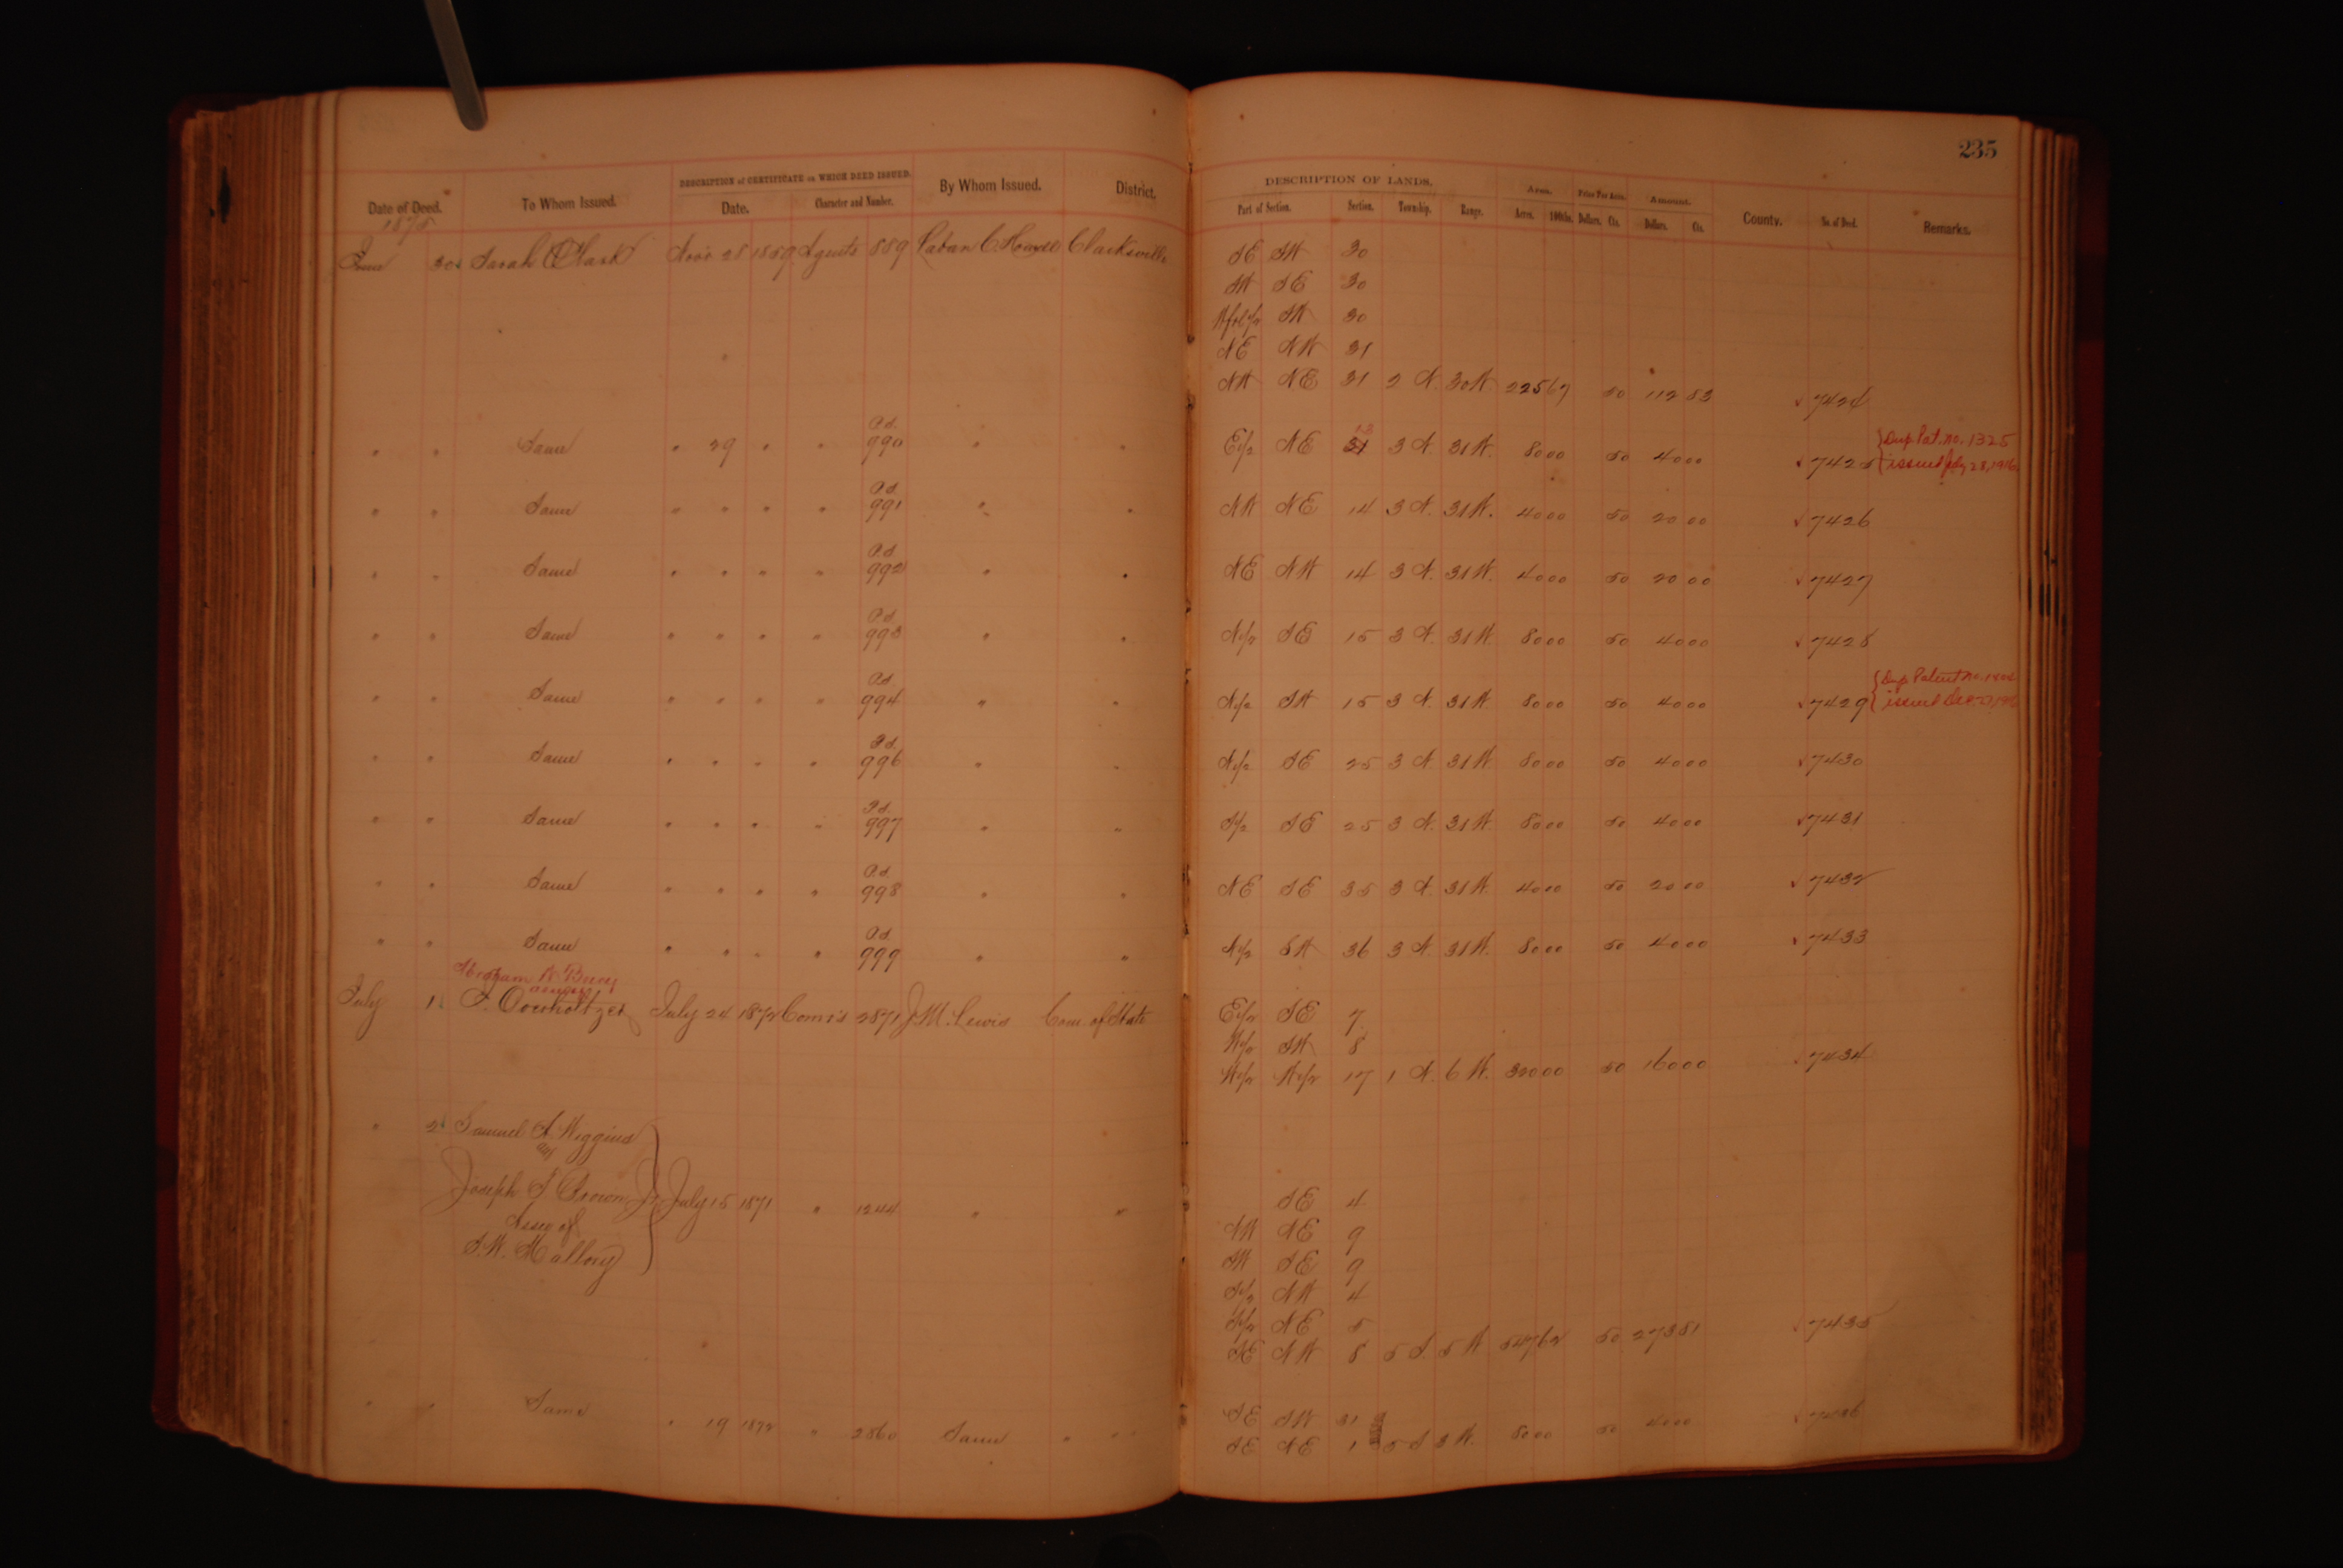 235
DESCRIPTION of CERTIFICATE on WHICH DEED ISSUED. DESCRIPTION OF LANDS. Area. Price Per Acre. Amount.
Date of Deed. To Whom Issued. Date. Character and Number. By Whom Issued. District. Part of Section. Section. Township. Range. Acres. 100ths. Dollars. Cts. Dollars. Cts. County. No. of Deed. Remarks.
1875
June 30 Sarah Clark Nov. 28 1859 Agents 889 Laban C Howell Clarksville SE SW 30
SW SE 30
SW 30
NE NW 31
NW NE 31 2 N. 30 W. 225 67 50 112 83 7424
" " Same " 29 " " Pd. 990 " " E 1/2 NE 31 13 3 N. 31 W. 80 00 50 40 00 7425 Dup. Pat. No. 1325
issued July 28, 1916
" " Same " " " " Pd. 991 " " NW NE 14 3 N. 31 W. 40 00 50 20 00 7426
" " Same " " " " Pd. 992 " " NE NW 14 3 N. 31 W. 40 00 50 20 00 7427
" " Same " " " " Pd. 993 " " N 1/2 SE 15 3 N. 31 W. 80 00 50 40 00 7428
" " Same " " " " Pd. 994 " " N 1/2 SW 15 3 N. 31 W. 80 00 50 40 00 7429 Dup Patent No.
issued Dec.
" " Same " " " " Pd. 996 " " N 1/2 SE 25 3 N. 31 W. 80 00 50 40 00 7430
" " Same " " " " Pd. 997 " " S 1/2 SE 25 3 N. 31 W. 80 00 50 40 00 7431
" " Same " " " " Pd. 998 " " NE SE 35 3 N. 31 W. 40 00 50 20 00 7432
" " Same " " " " Pd. 999 " " N 1/2 SW 36 3 N. 31 W. 80 00 50 40 00 7433
assignee
July 1 Overholtzer July 24 1872 Com's 2871 J. M. Lewis Com. of State E 1/2 SE 7
W 1/2 SW 8
W 1/2 W 1/2 17 1 N. 6 W. 320 00 50 160 00 7434
" 2 Samuel A. Wiggins
and
Joseph S Brown Jr July 15 1871 " 1244 " " SE 4
Assee of NW NE 9
S. W. Mallory SW SE 9
S 1/2 NW 4
S 1/2 NE 5
SE NW 8 5 S. 5 W 547 62 50 273 81 7435
" " Same " 19 1872 " 2860 Same " " SE SW 31
SE NE 1 5 S 3 W. 80 00 50 40 00 7436